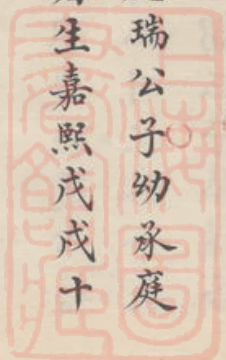 瑞公子幼承庭
生嘉熙戊戌十